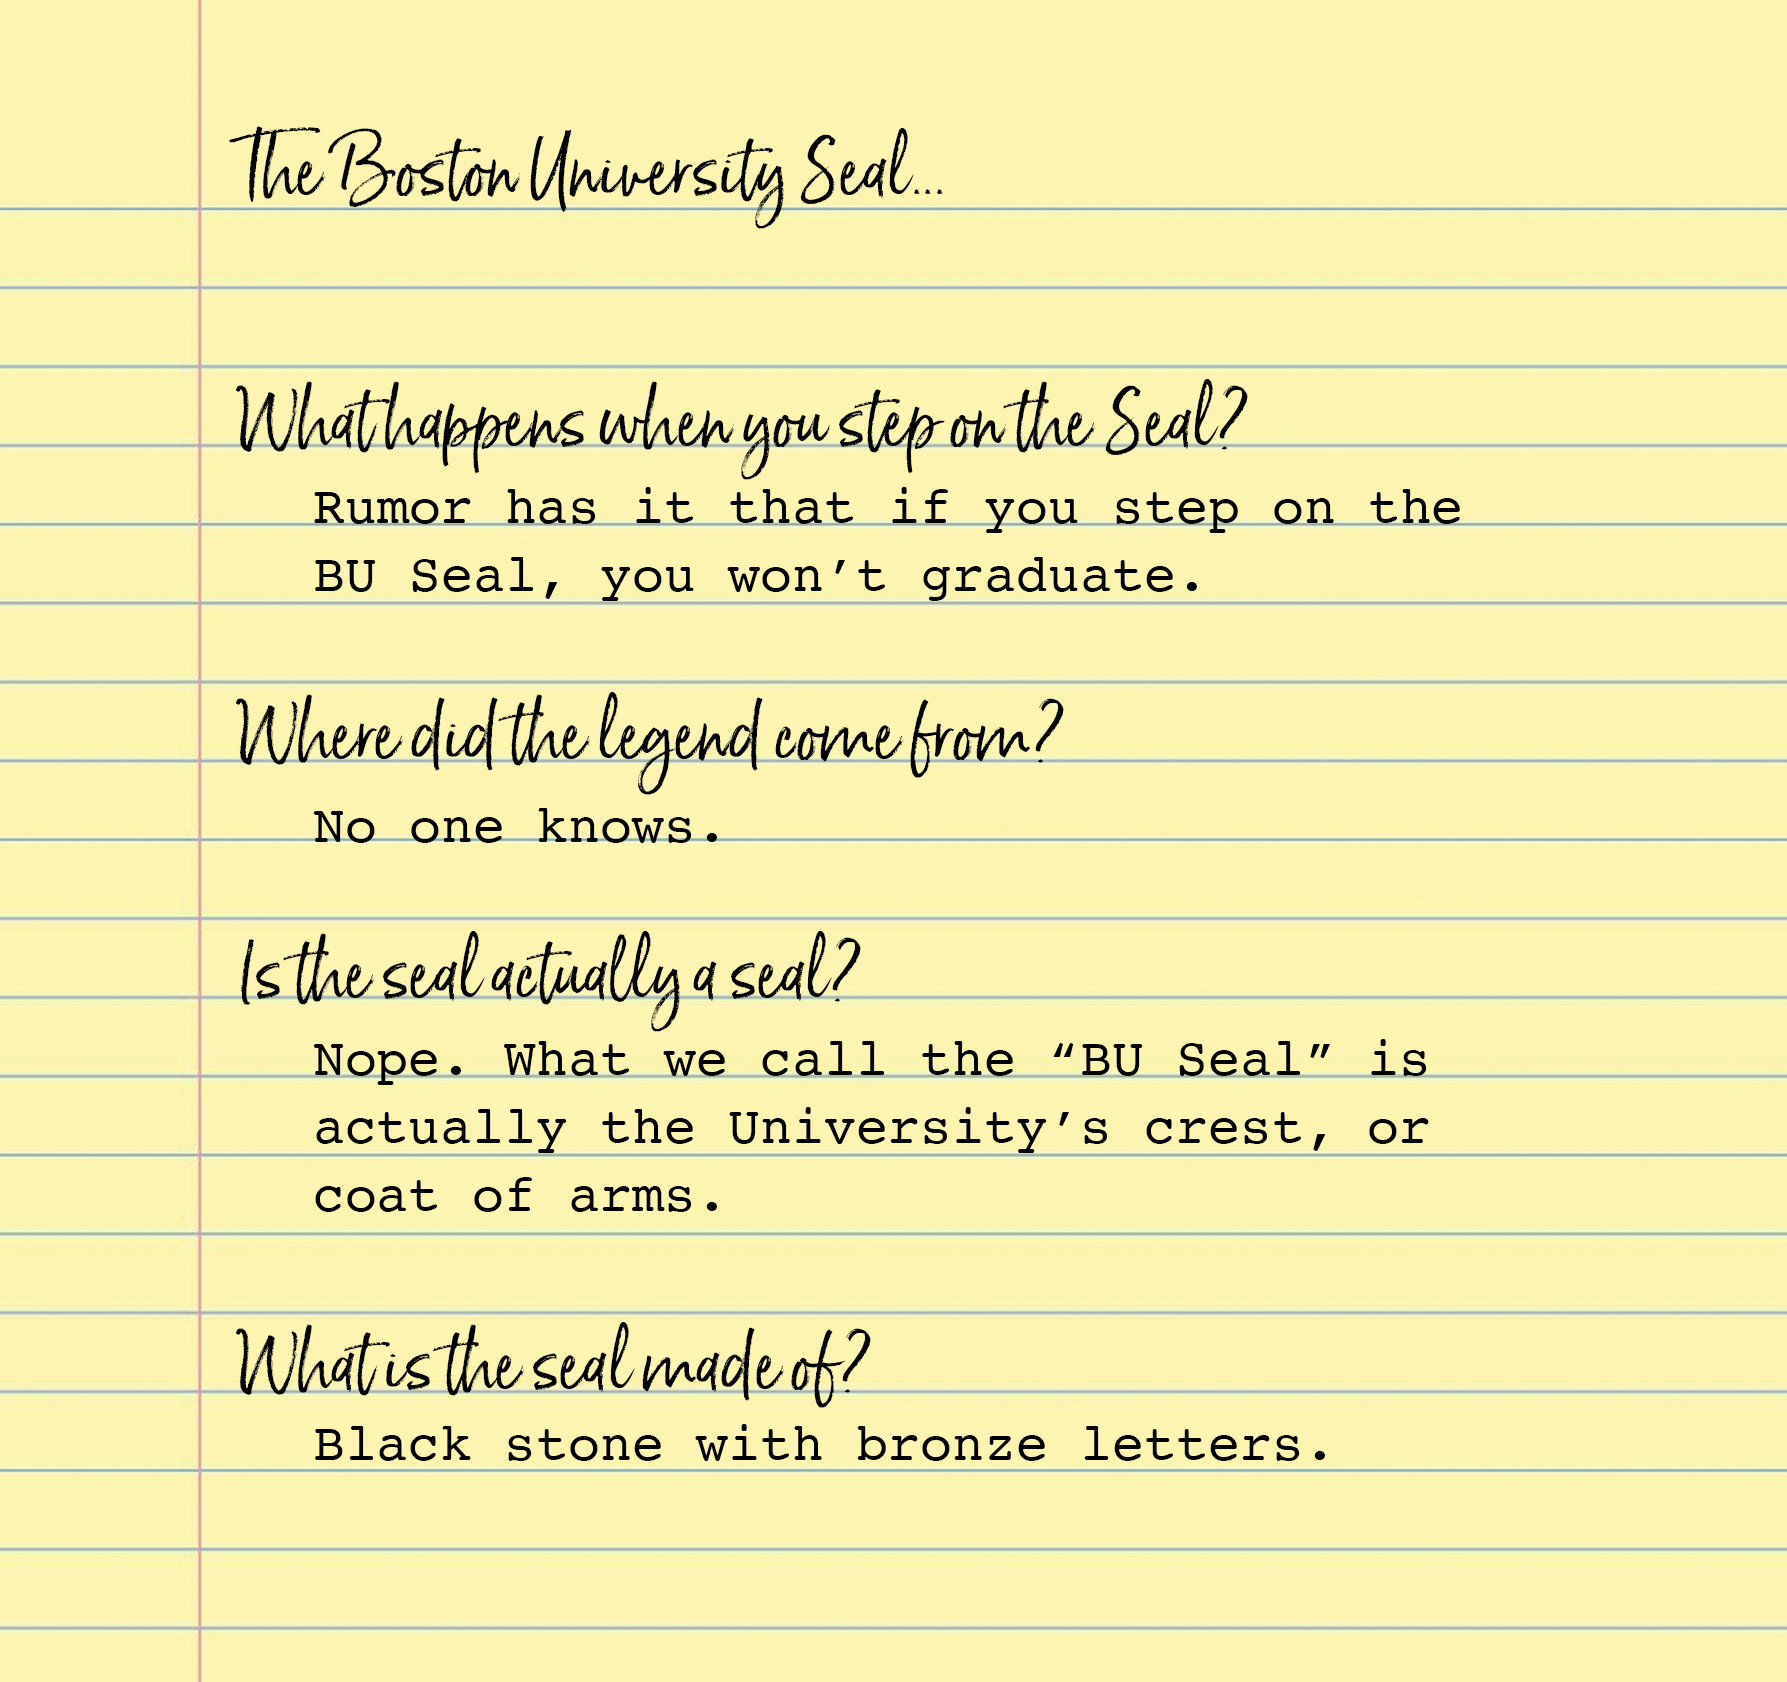 The Boston University Seal...
What happens when you step on the Seal?
Rumor has it that if you step on the
BU Seal, you won’t graduate.
Where did the legend come from?
No one knows.
Is the seal actually a seal?
Nope. What we call the “BU Seal” is
actually the University’s crest, or
coat of arms.
What is the seal made of?
Black stone with bronze letters.